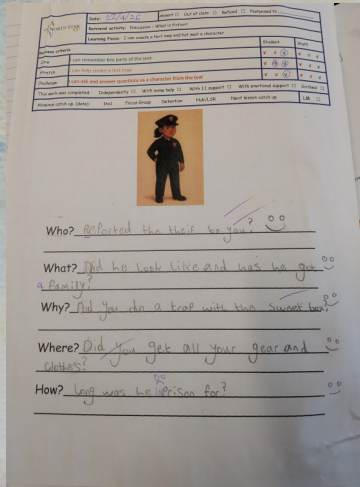 NORTH STAR
Date: 22/4/26 Absent Out of class Refused Postponed to
Retrieval activity: Discussion - What is fiction?
Learning Focus: I can create a text map and hot seat a character
Success criteria Student Staff
I can remember key parts of the text
Stretch I can help create a text map
Challenge I can ask and answer questions as a character from the text
This work was completed: Independently With some help With 1:1 support With emotional support Scribed
Absence catch up (date): 1to1 Focus Group Detention Hub/LSR Next lesson catch up LM
Who? Reported the theif be you?
What? Did he look like and has he got
a family?
Why? Did you do a trap with the sunset box?
Where? Did you get all your gear and
clothes?
How? Long was he in prison for?